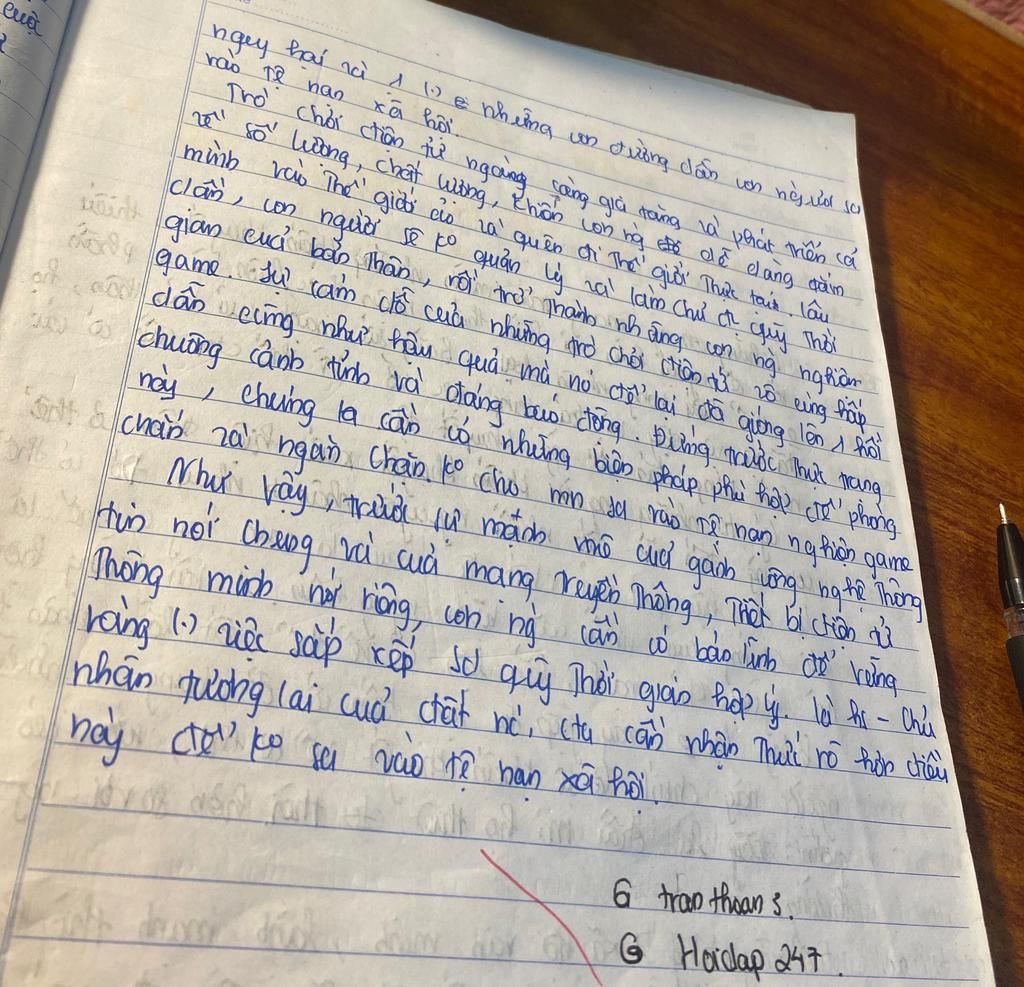 cuộc
nguy hại và 1 (.) e những con đường dẫn con ng` vừa sa
vào tệ nạn xã hội.
Trò chơi điện tử ngàng càng gia tăng và phát triển cả
về số lượng, chất lượng, khiến con ng` dễ dàng đắm
mình vào thế giới ảo và quên đi thế giới thực tại. lâu
dần, con người sẽ ko quản lý và làm chủ đc quỹ thời
gian của bản thân, rồi trở thành những con ng` nghiện
game. Sự cám dỗ của những trò chơi điện tử vô cùng hấp
dẫn cũng như hậu quả mà nó để lại đã gióng lên 1 hồi
chuông cảnh tỉnh và đáng báo động. Đứng trước thực trạng
này, chúng ta cần có những biện pháp phù hợp để phòng
chắn và ngăn chặn ko cho mn sa vào tệ nạn nghiện game
Như vậy, trước sự mạnh mẽ của gành công nghệ thông
tin nói chung và của mạng truyền thông, thiết bị điện tử
thông minh nói riêng, con ng` cần có bản lĩnh để vững
vàng (.) việc sắp xếp sd quỹ thời gian hợp lý. là hs - chủ
nhân tương lai của đất nc, cta cần nhận thức rõ hơn điều
này để ko sa vào tệ nạn xã hội.
G tranthoan3.
G Hoidap 247.